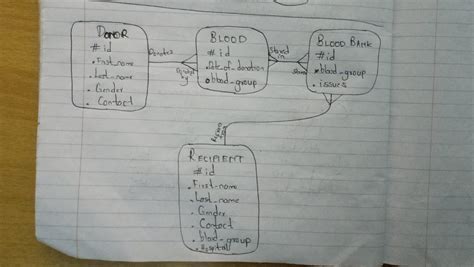 DONOR
# id
• First_name
• Last_name
• Gender
• Contact
Donates
Donated
by
BLOOD
# id
• Date_of_donation
• blood_group
Stored
in
Stores
BLOOD BANK
# id
• blood_group
• issues
RECIPIENT
# id
• First_name
• Last_name
• Gender
• Contact
• blood_group